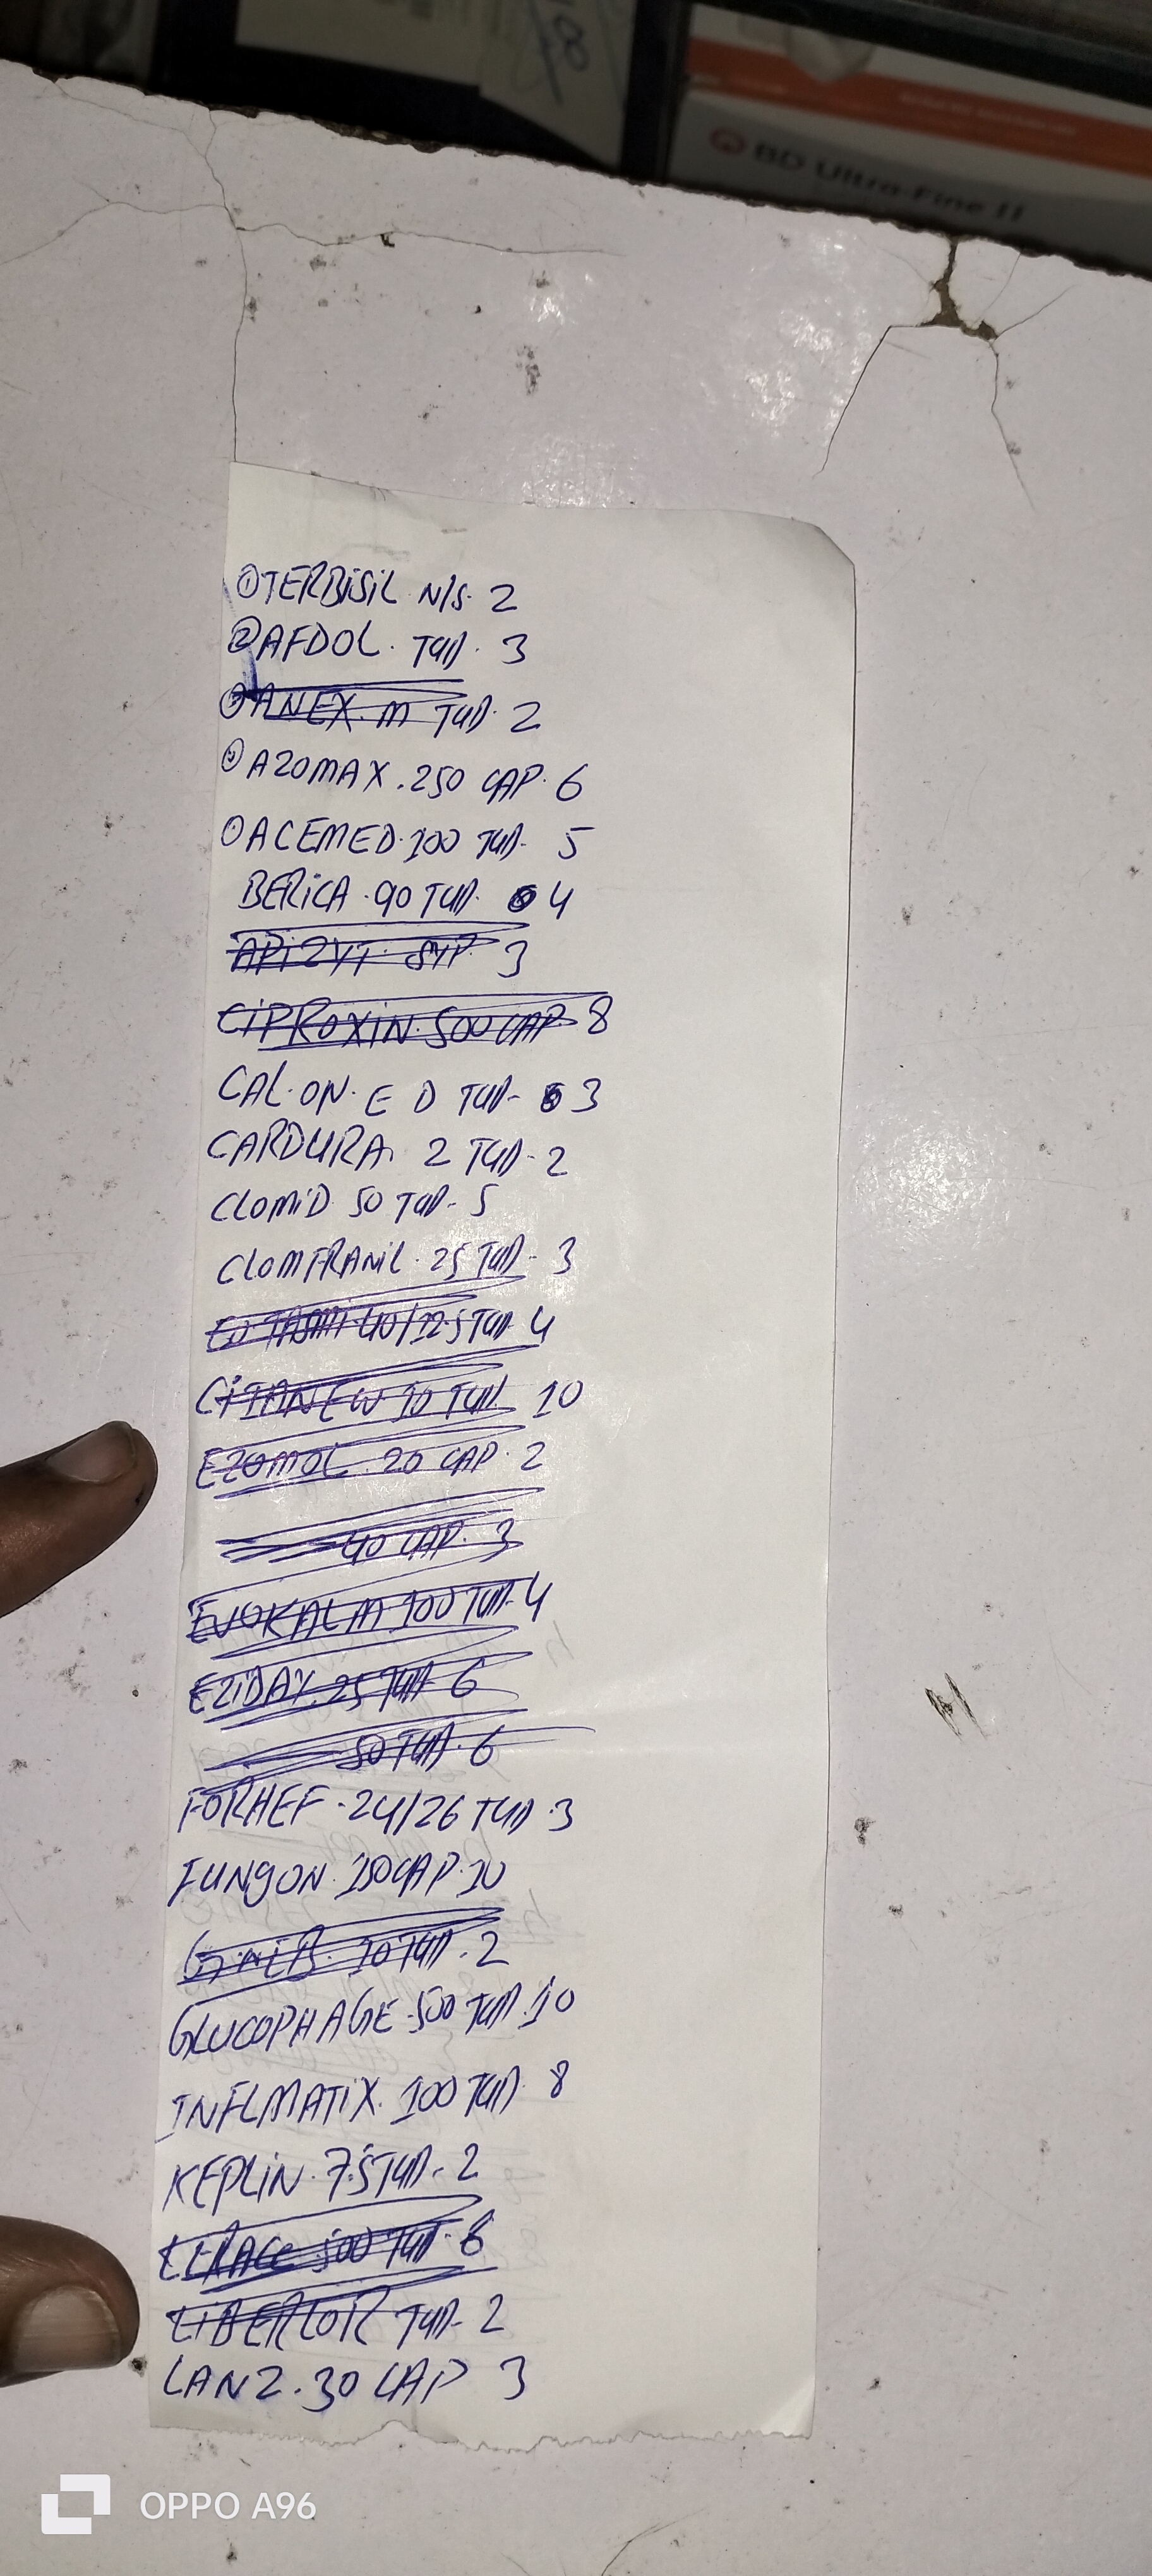 BD Ultra-Fine II
① TERBISIL N/S. 2
② AFDOL. TAB. 3
③ ANEX. M TAB. 2
④ AZOMAX. 250 CAP. 6
ACEMED. 100 TAB. 5
BERICA. 90 TAB. 4
APIZYT. SYP. 3
CIPROXIN. 500 CAP 8
CAL. ON. E D TAB- 3
CARDURA 2 TAB- 2
CLOMID 50 TAB- 5
CLOMFRANIL. 25 TAB- 3
40/12.5 TAB 4
CITANEW 10 TAB 10
EZOMOL 20 CAP. 2
40 CAP. 3
EVOKALM 100 TAB- 4
EZIDAY. 25 TAB 6
50 TAB. 6
FORHEF - 24/26 TAB. 3
FUNGON. 150 CAP. 10
10 TAB. 2
GLUCOPHAGE- 500 TAB. 10
INFLMATIX. 100 TAB. 8
KEPLIN. 75 TAB- 2
LERACE 500 TAB. 6
TAB- 2
LANZ. 30 CAP 3
OPPO A96